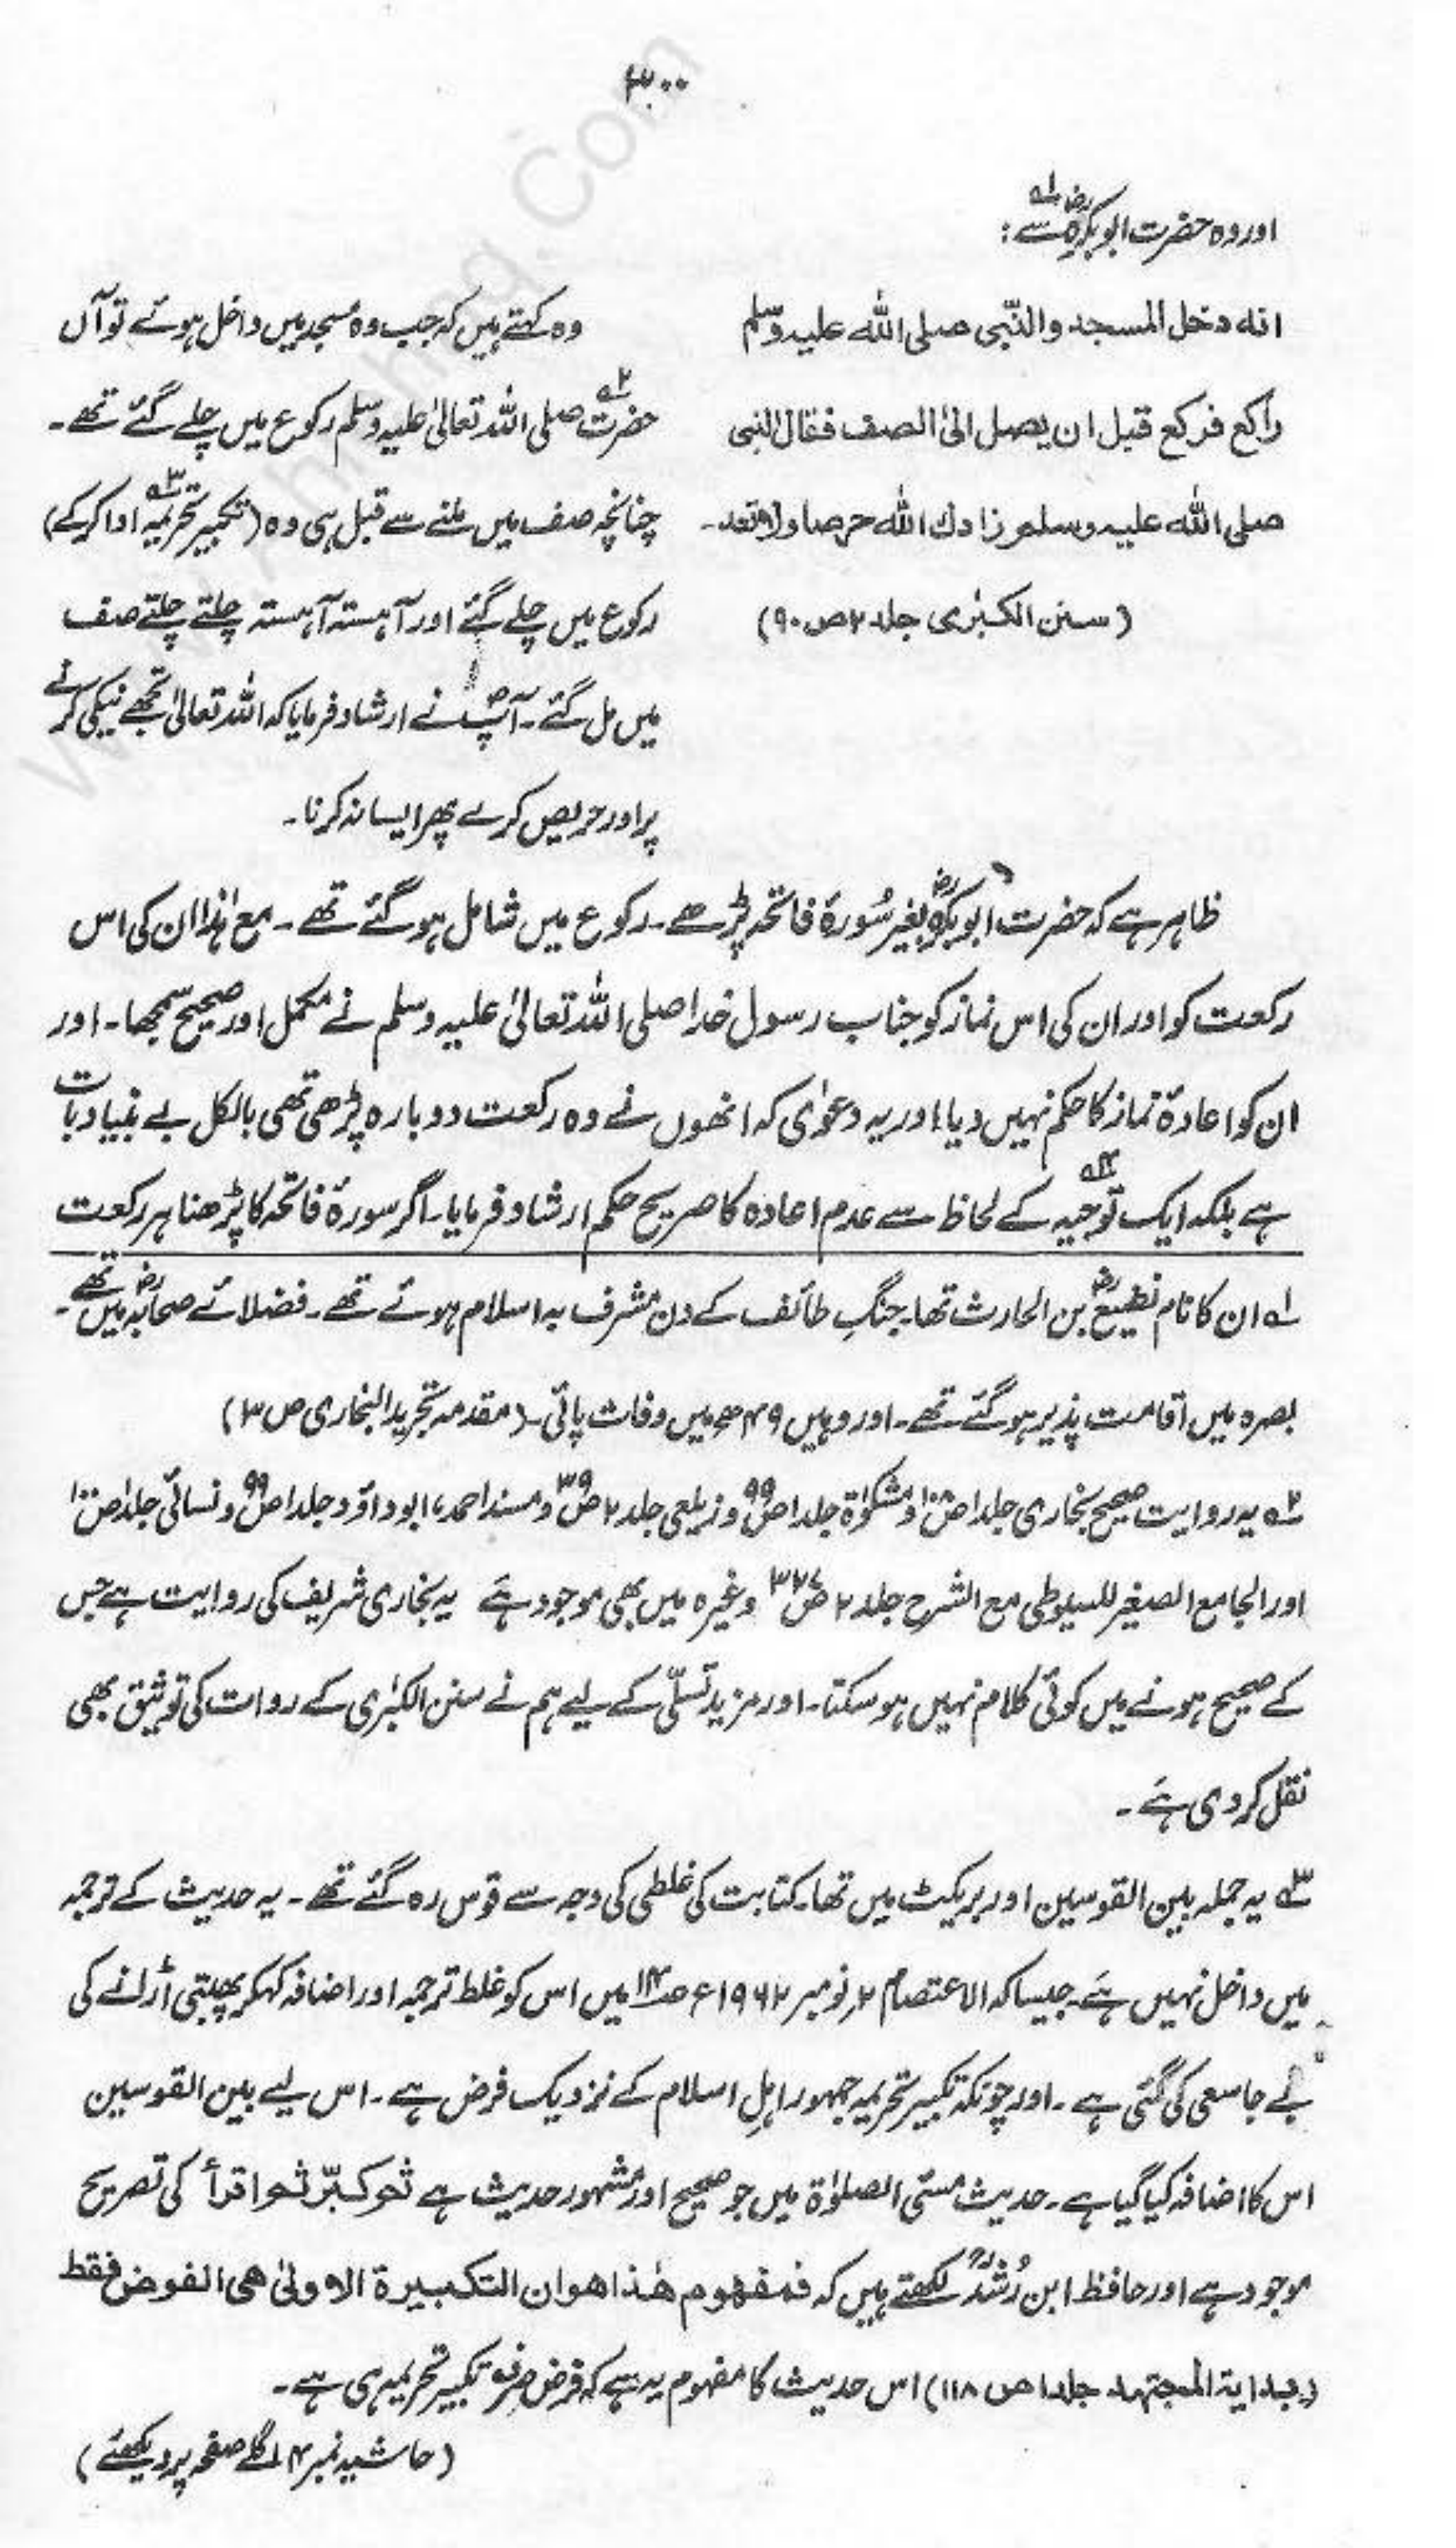 ۳۰۰
اور وہ حضرت ابوبکرہؓ سے لہ :
انه دخل المسجد والنّبی صلی اللّٰه علیه وسلم
راکع فرکع قبل ان یصل الیٰ الصف فقال النبی
صلی اللّٰه علیه وسلم زادك اللّٰه حرصا ولا تعد۔
(سنن الکبرٰی جلد ۲ ص ۹۰)
وہ کہتے ہیں کہ جب وہ مسجد میں داخل ہوئے تو آں
حضرت ۲ہ صلی اللہ تعالیٰ علیہ وسلم رکوع میں چلے گئے تھے۔
چنانچہ صف میں ملنے سے قبل ہی وہ (تکبیر تحریمہ ۳ہ ادا کرکے)
رکوع میں چلے گئے اور آہستہ آہستہ چلتے چلتے صف
میں مل گئے۔ آپؐ نے ارشاد فرمایا کہ اللہ تعالیٰ تجھے نیکی کرنے
پر اور حریص کرے پھر ایسا نہ کرنا۔
ظاہر ہے کہ حضرت ابوبکرہؓ بغیر سُورۂ فاتحہ پڑھے۔ رکوع میں شامل ہوگئے تھے۔ مع ہٰذا ان کی اس
رکعت کو اور ان کی اس نماز کو جناب رسول خدا صلی اللہ تعالیٰ علیہ وسلم نے مکمل اور صحیح سمجھا۔ اور
ان کو اعادۂ نماز کا حکم نہیں دیا، اور یہ دعوٰی کہ انھوں نے وہ رکعت دوبارہ پڑھی تھی بالکل بے بنیاد بات
ہے بلکہ ایک توجیہ ۴ہ کے لحاظ سے عدم اعادہ کا صریح حکم ارشاد فرمایا۔ اگر سورۂ فاتحہ کا پڑھنا ہر رکعت
۱ہ ان کا نام نفیعؓ بن الحارث تھا۔ جنگِ طائف کے دن مشرف بہ اسلام ہوئے تھے۔ فضلائے صحابہؓ میں تھے۔
بصرہ میں اقامت پذیر ہوگئے تھے۔ اور وہیں ۴۹ھ میں وفات پائی۔ (مقدمہ تجرید البخاری ص ۳)
۲ہ یہ روایت صحیح بخاری جلد ا ص ۱۰۸ و مشکوٰۃ جلد ا ص ۹۹ و زیلعی جلد ۲ ص ۳۹ و مسند احمد، ابو داؤد جلد ا ص ۹۹ و نسائی جلد ا ص
اور الجامع الصغیر للسیوطی مع الشرح جلد ۲ ص وغیرہ میں بھی موجود ہے یہ بخاری شریف کی روایت ہے جس
کے صحیح ہونے میں کوئی کلام نہیں ہو سکتا۔ اور مزید تسلّی کے لیے ہم نے سنن الکبرٰی کے روات کی توثیق بھی
نقل کر دی ہے۔
۳ہ یہ جملہ بین القوسین اور بریکٹ میں تھا۔ کتابت کی غلطی کی وجہ سے قوس رہ گئے تھے۔ یہ حدیث کے ترجمہ
میں داخل نہیں ہے۔ جیسا کہ الاعتصام ۲ر نومبر ۱۹۶۲ء ص میں اس کو غلط ترجمہ اور اضافہ کہکر پھبتی اُڑانے کی
بے جا سعی کی گئی ہے۔ اور چونکہ تکبیر تحریمہ جمہور اہلِ اسلام کے نزدیک فرض ہے۔ اس لیے بین القوسین
اس کا اضافہ کیا گیا ہے۔ حدیث مسئی الصلوٰۃ میں جو صحیح اور مشہور حدیث ہے ثم کبّر ثم اقرأ کی تصریح
موجود ہے اور حافظ ابن رُشدؒ لکھتے ہیں کہ فمفهوم هٰذا هو ان التکبیرة الاولیٰ هی الفرض فقط
(بدایة المجتهد جلد ا ص ۱۱۸) اس حدیث کا مفہوم یہ ہے کہ فرض صرف تکبیر تحریمہ ہی ہے۔
(حاشیہ نمبر ۴ اگلے صفحہ پر دیکھئے)